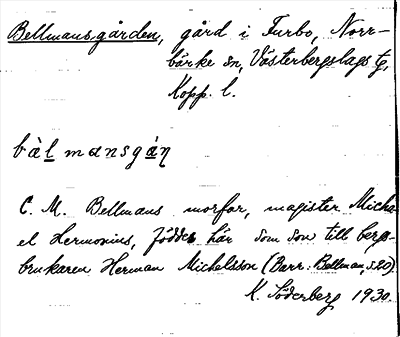 Bellmansgården, gård i Turbo, Norr-
bärke sn, Västerbergslags tg,
Kopp. l.
bàlmansgáṇ
C. M. Bellmans morfar, magister Micha-
el Hermonius, föddes här som son till bergs-
brukaren Herman Michelsson (Barr: Bellman, s. 20).
K. Söderberg 1930.